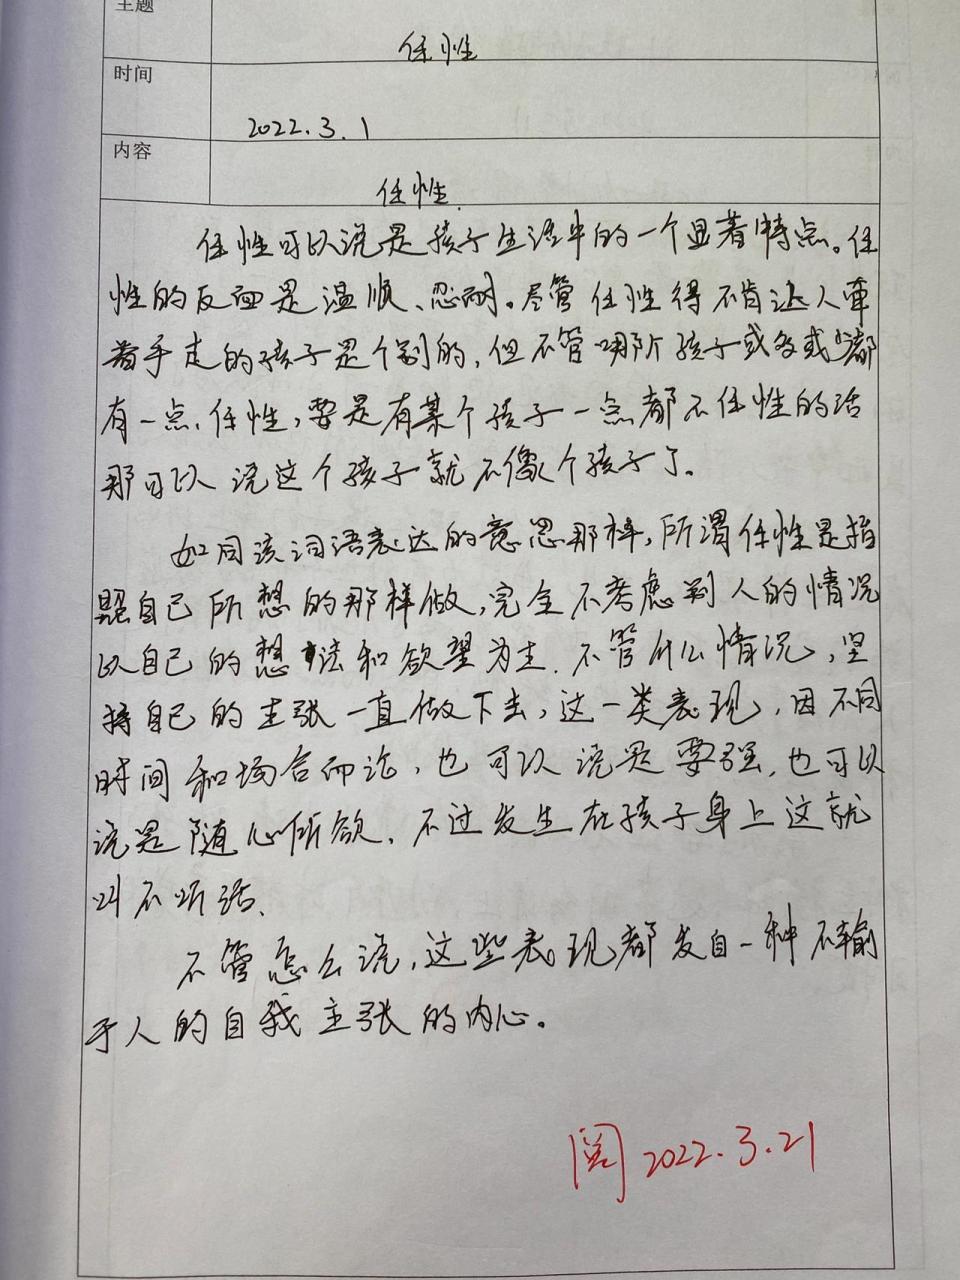 主题
任性
时间
2022.3.1
内容
任性.
任性可以说是孩子生活中的一个显著特点。任
性的反面是温顺、忍耐。尽管任性得不肯让人牵
着手走的孩子是个别的,但不管哪个孩子或多或少都
有一点任性,要是有某个孩子一点都不任性的话
那可以说这个孩子就不像个孩子了。
如同该词语表达的意思那样,所谓任性是指
照自己所想的那样做,完全不考虑别人的情况
以自己的想法和欲望为主.不管什么情况,坚
持自己的主张一直做下去,这一类表现,因不同
时间和场合而论,也可以说是要强,也可以
说是随心所欲,不过发生在孩子身上这就
叫不听话、
不管怎么说,这些表现都发自一种不输
于人的自我主张的内心。
阅 2022.3.21